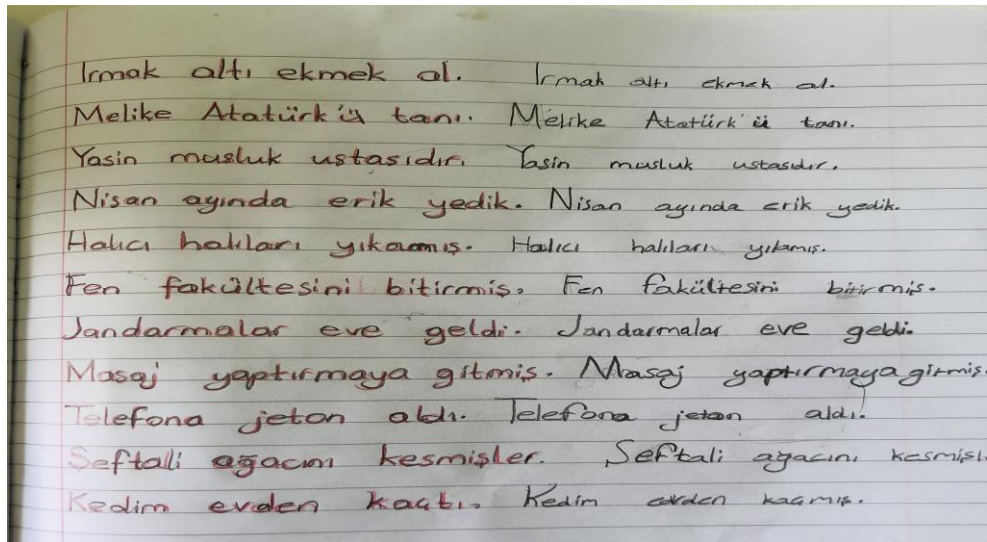 Irmak altı ekmek al. Irmak altı ekmek al.
Melike Atatürk'ü tanı. Melike Atatürk'ü tanı.
Yasin musluk ustasıdır. Yasin musluk ustasıdır.
Nisan ayında erik yedik. Nisan ayında erik yedik.
Halıcı halıları yıkamış. Halıcı halıları yıkamış.
Fen fakültesini bitirmiş. Fen fakültesini bitirmiş.
Jandarmalar eve geldi. Jandarmalar eve geldi.
Masaj yaptırmaya gitmiş. Masaj yaptırmaya gitmiş.
Telefona jeton aldı. Telefona jeton aldı.
Seftali ağacını kesmişler. Seftali ağacını kesmişl
Kedim evden kaçtı. Kedim evden kaçmış.